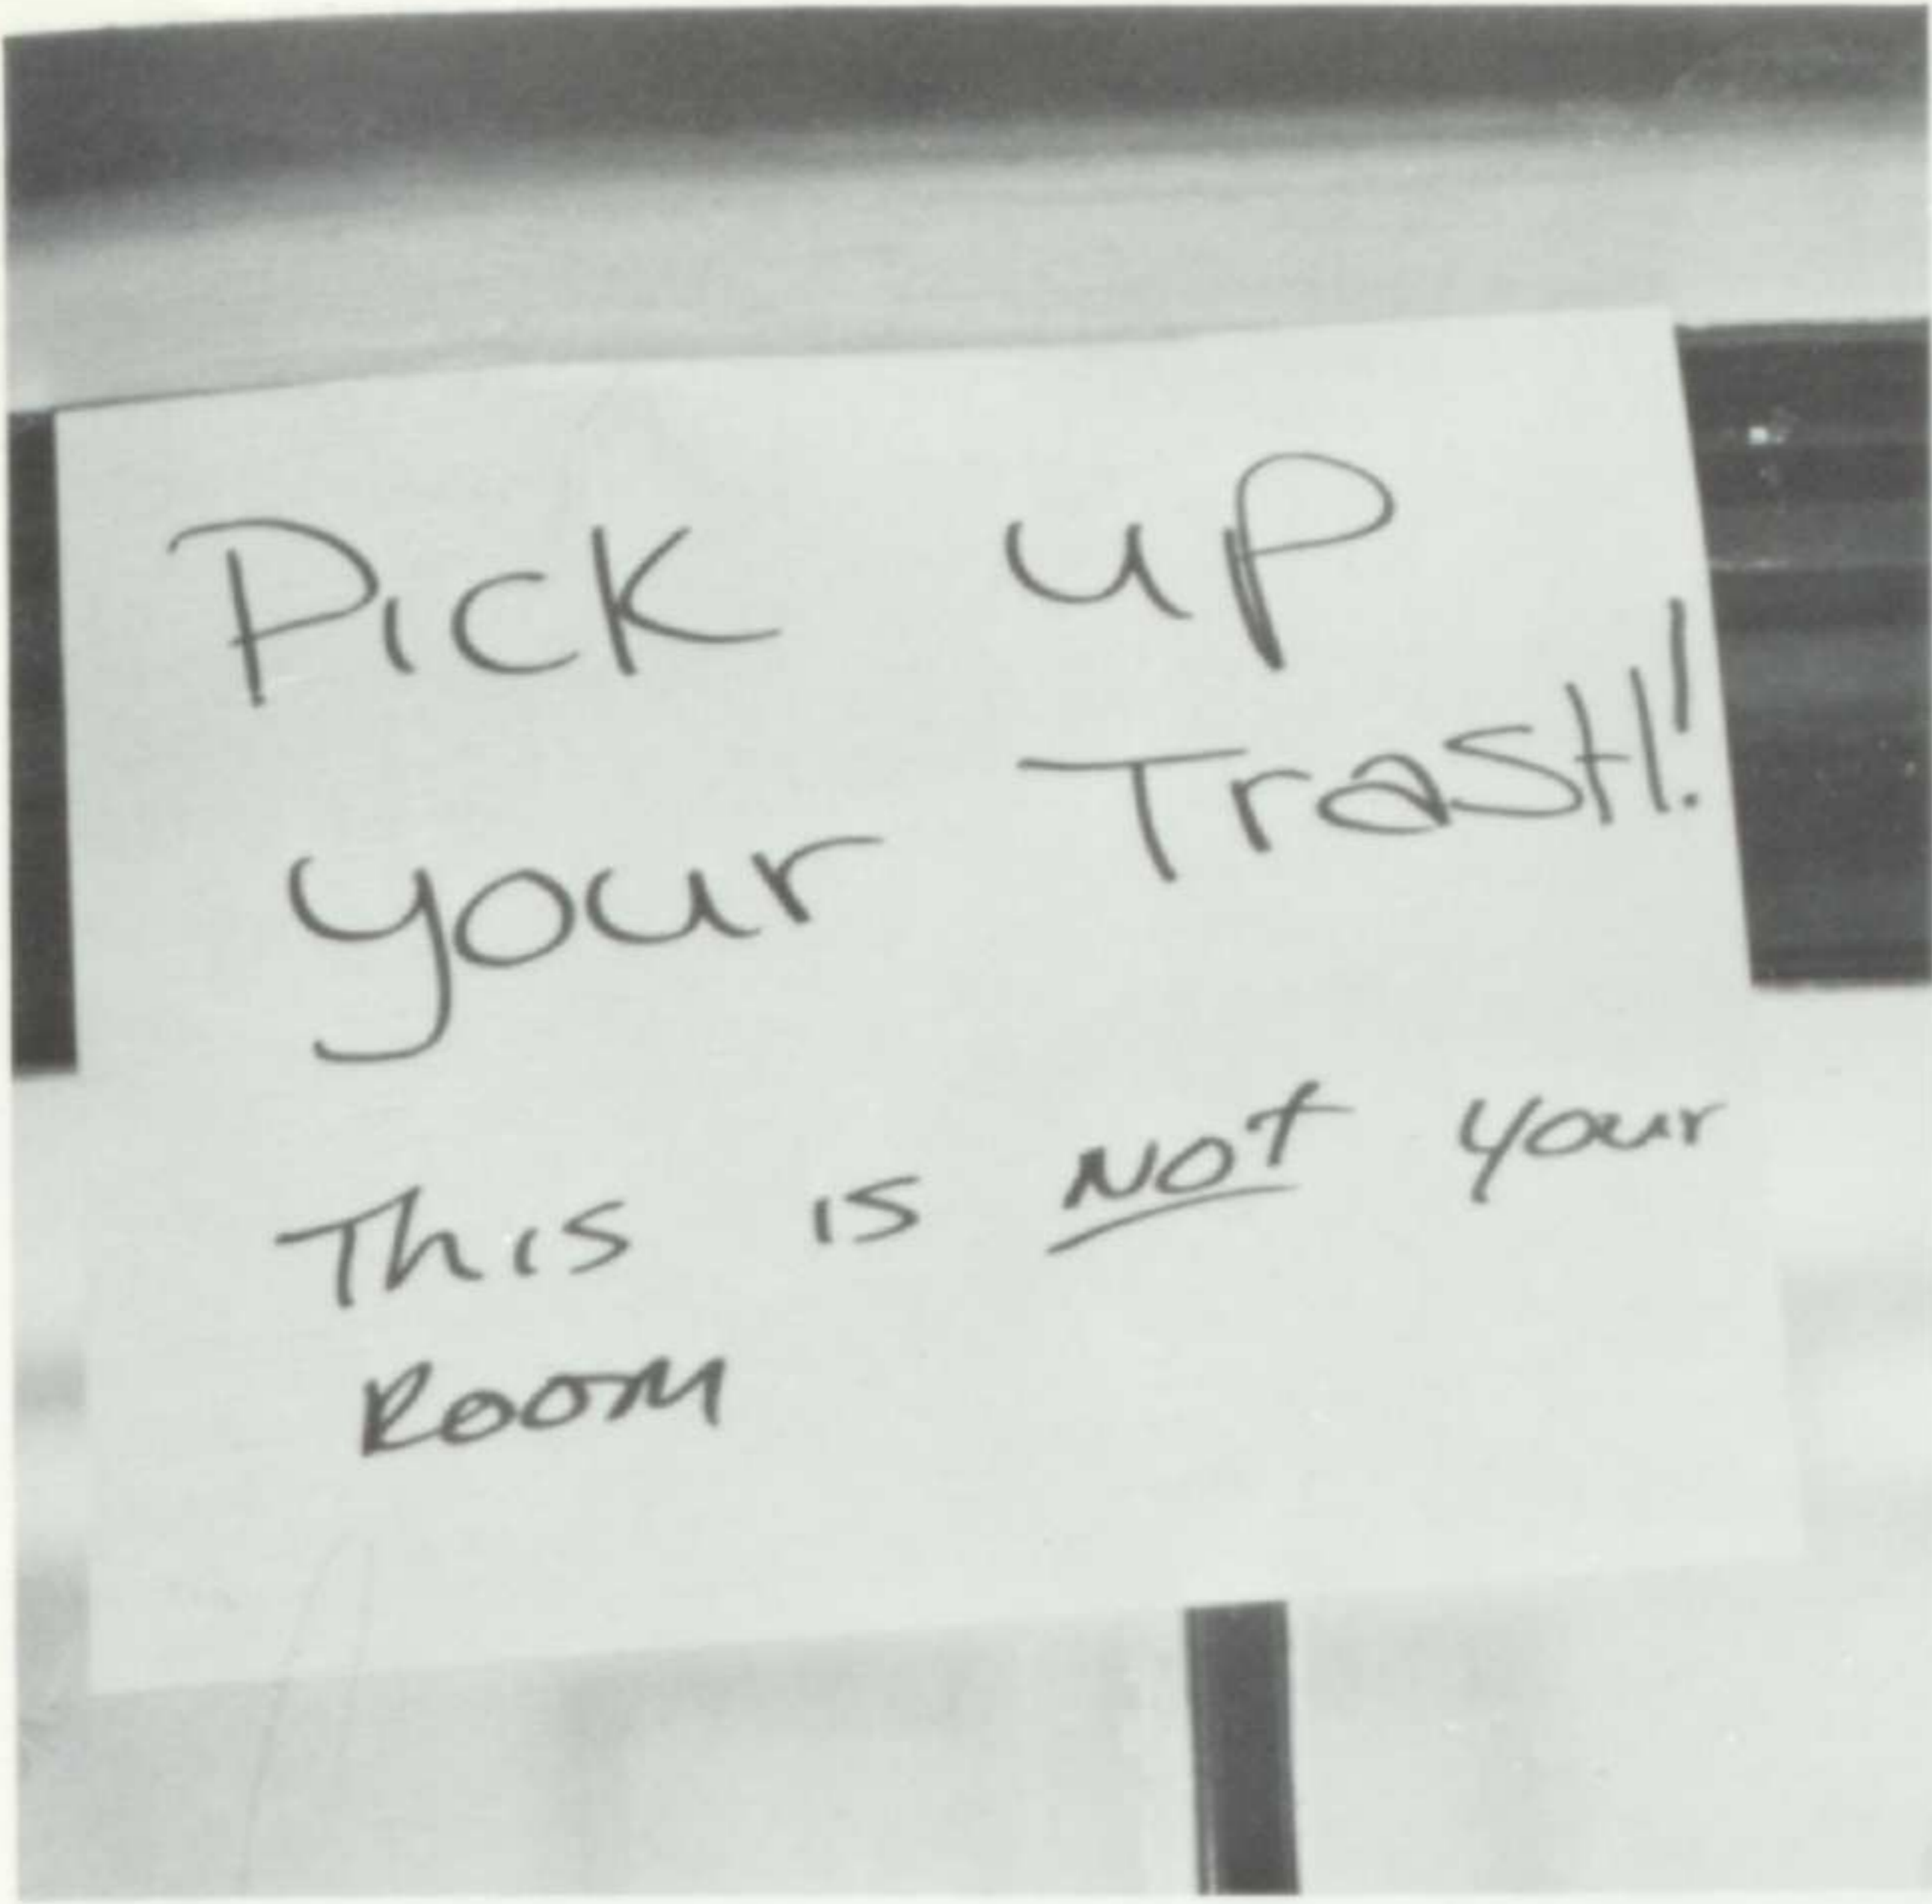 Pick up
your TrasH!
This is NOt your
ROOM